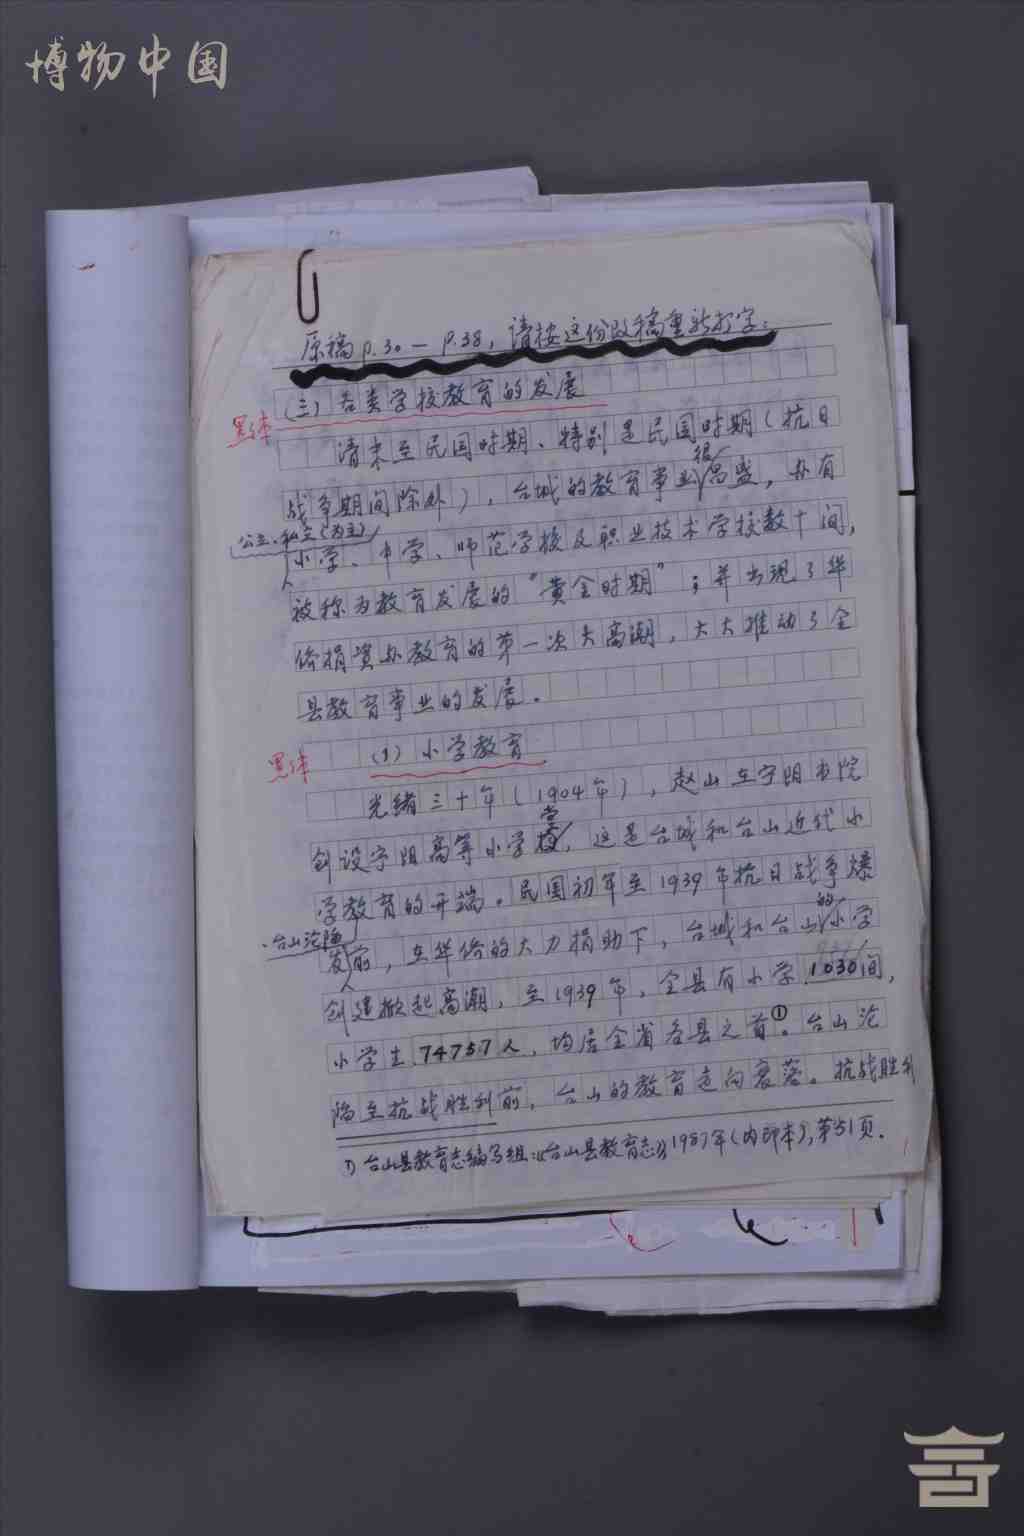 博物中国
原稿p.30—p.38，请按这份改稿重新打字：
黑体
(三)各类学校教育的发展
清末至民国时期、特别是民国时期（抗日
很
战争期间除外），台城的教育事业昌盛，办有
公立、私立(为主)
小学、中学、师范学校及职业技术学校数十间，
被称为教育发展的“黄金时期”；并出现了华
侨捐资办教育的第一次大高潮，大大推动了全
县教育事业的发展。
黑体
(1)小学教育
光绪三十年（1904年），赵山在宁阳书院
堂
创设宁阳高等小学校，这是台城和台山近代小
学教育的开端。民国初年至1939年抗日战争爆
台山沦陷
的
发前，在华侨的大力捐助下，台城和台山小学
创建掀起高潮，至1939年，全县有小学1030间，
小学生74757人，均居全省各县之首①。台山沦
陷至抗战胜利前，台山的教育走向衰落。抗战胜利
①台山县教育志编写组：《台山县教育志》，1987年(内部本)，第51页.